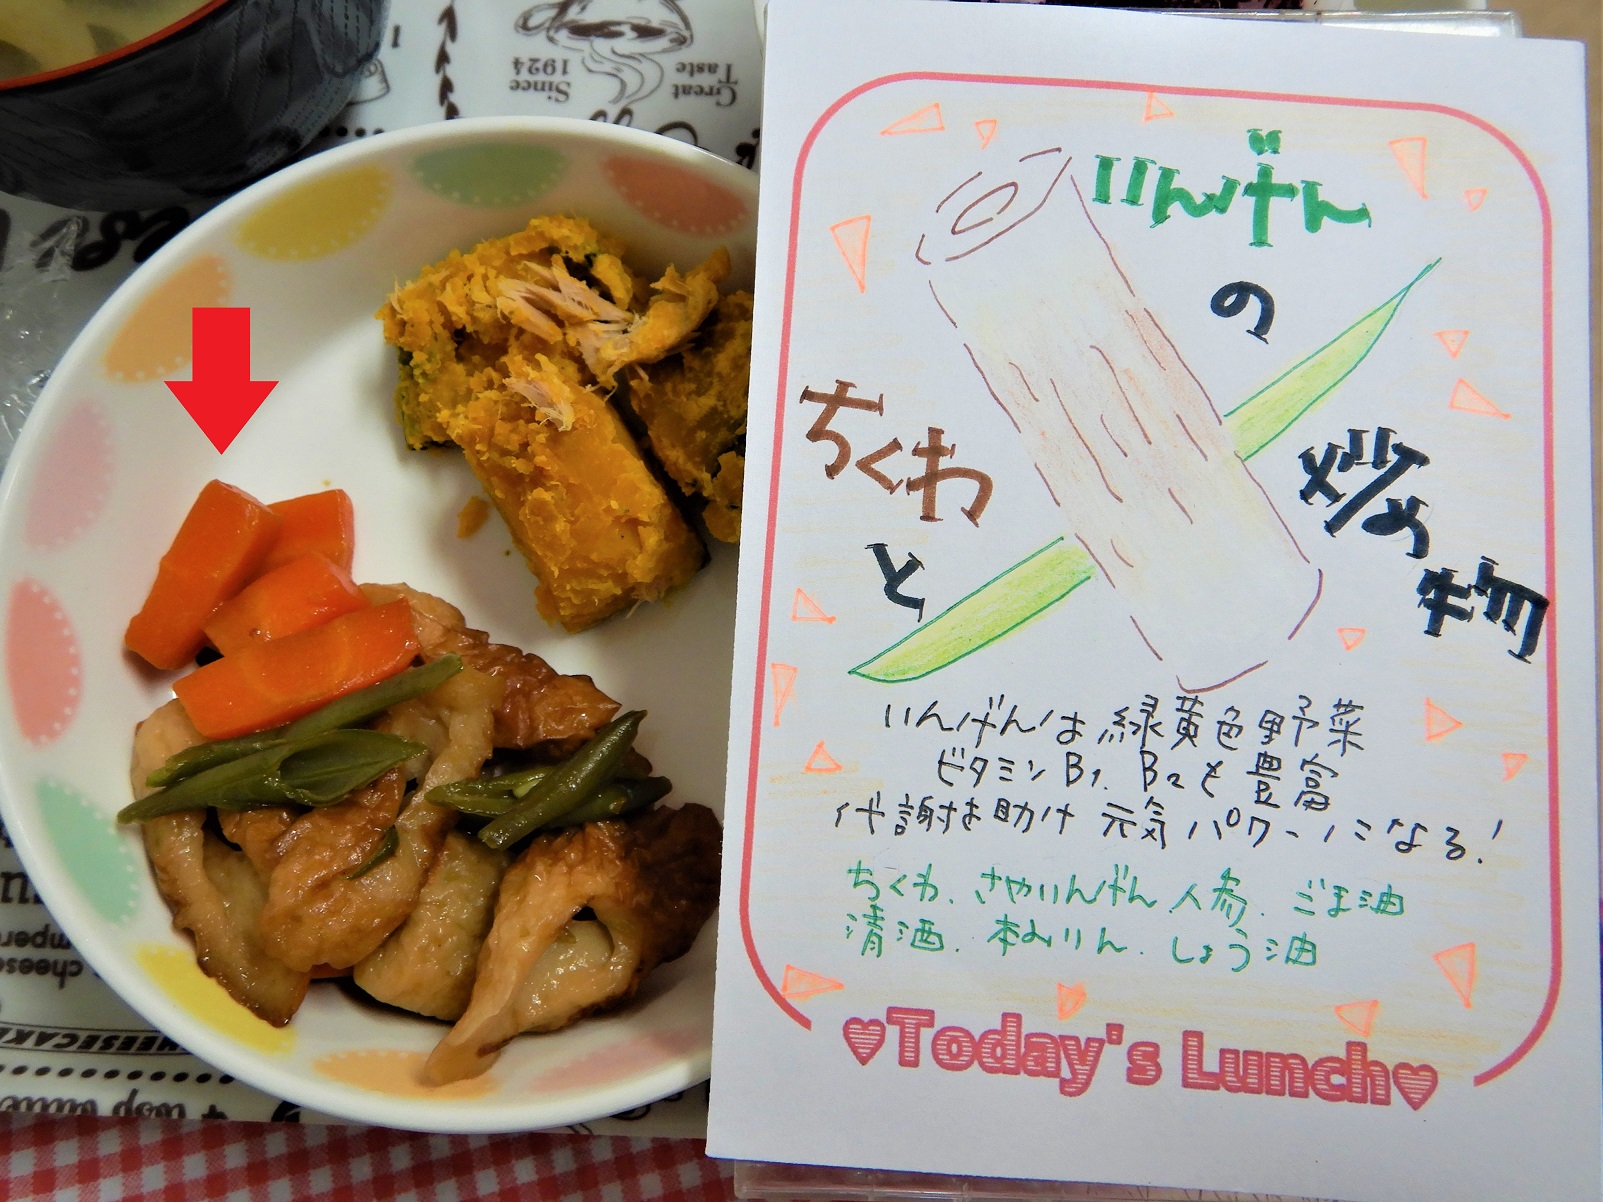 Great
Taste
Since
1924
いんげん
の
ちくわ
と
炒め
物
いんげんは緑黄色野菜
ビタミンB1、B2も豊富
代謝を助け 元気パワーになる!
ちくわ、さやいんげん、人参、ごま油
清酒、本みりん、しょう油
♥Today's Lunch♥
CHEESECAKE
4 tbsp